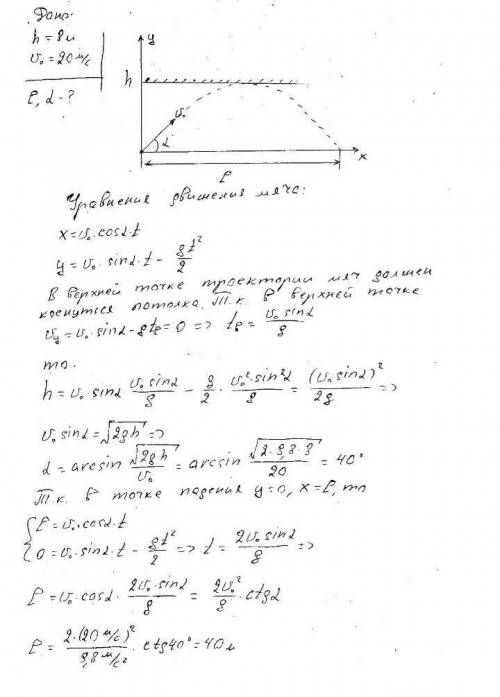 Дано:
h = 8м
v₀ = 20 м/с
ℓ, α - ?
y
h
v₀
α
x
ℓ
Уравнения движения мяча:
x = v₀·cosα·t
y = v₀·sinα·t - gt²/2
В верхней точке траектории мяч должен
коснуться потолка. Т.к. в верхней точке
v_y = v₀·sinα - gt_в = 0 => t_в = v₀ sinα/g
то.
h = v₀·sinα v₀ sinα/g - g/2 · v₀²·sin²α/g = (v₀ sinα)²/2g =>
v₀ sinα = √2gh =>
α = arcsin √2gh/v₀ = arcsin √2·9,8·8/20 = 40°
Т.к. в точке падения y=0, x=ℓ, то
{ ℓ = v₀·cosα·t
0 = v₀·sinα·t - gt²/2 => t = 2v₀ sinα/g =>
ℓ = v₀·cosα · 2v₀·sinα/g = 2v₀²/g · ctgα
ℓ = 2·(20 м/с)²/9,8 м/с² · ctg40° = 40м